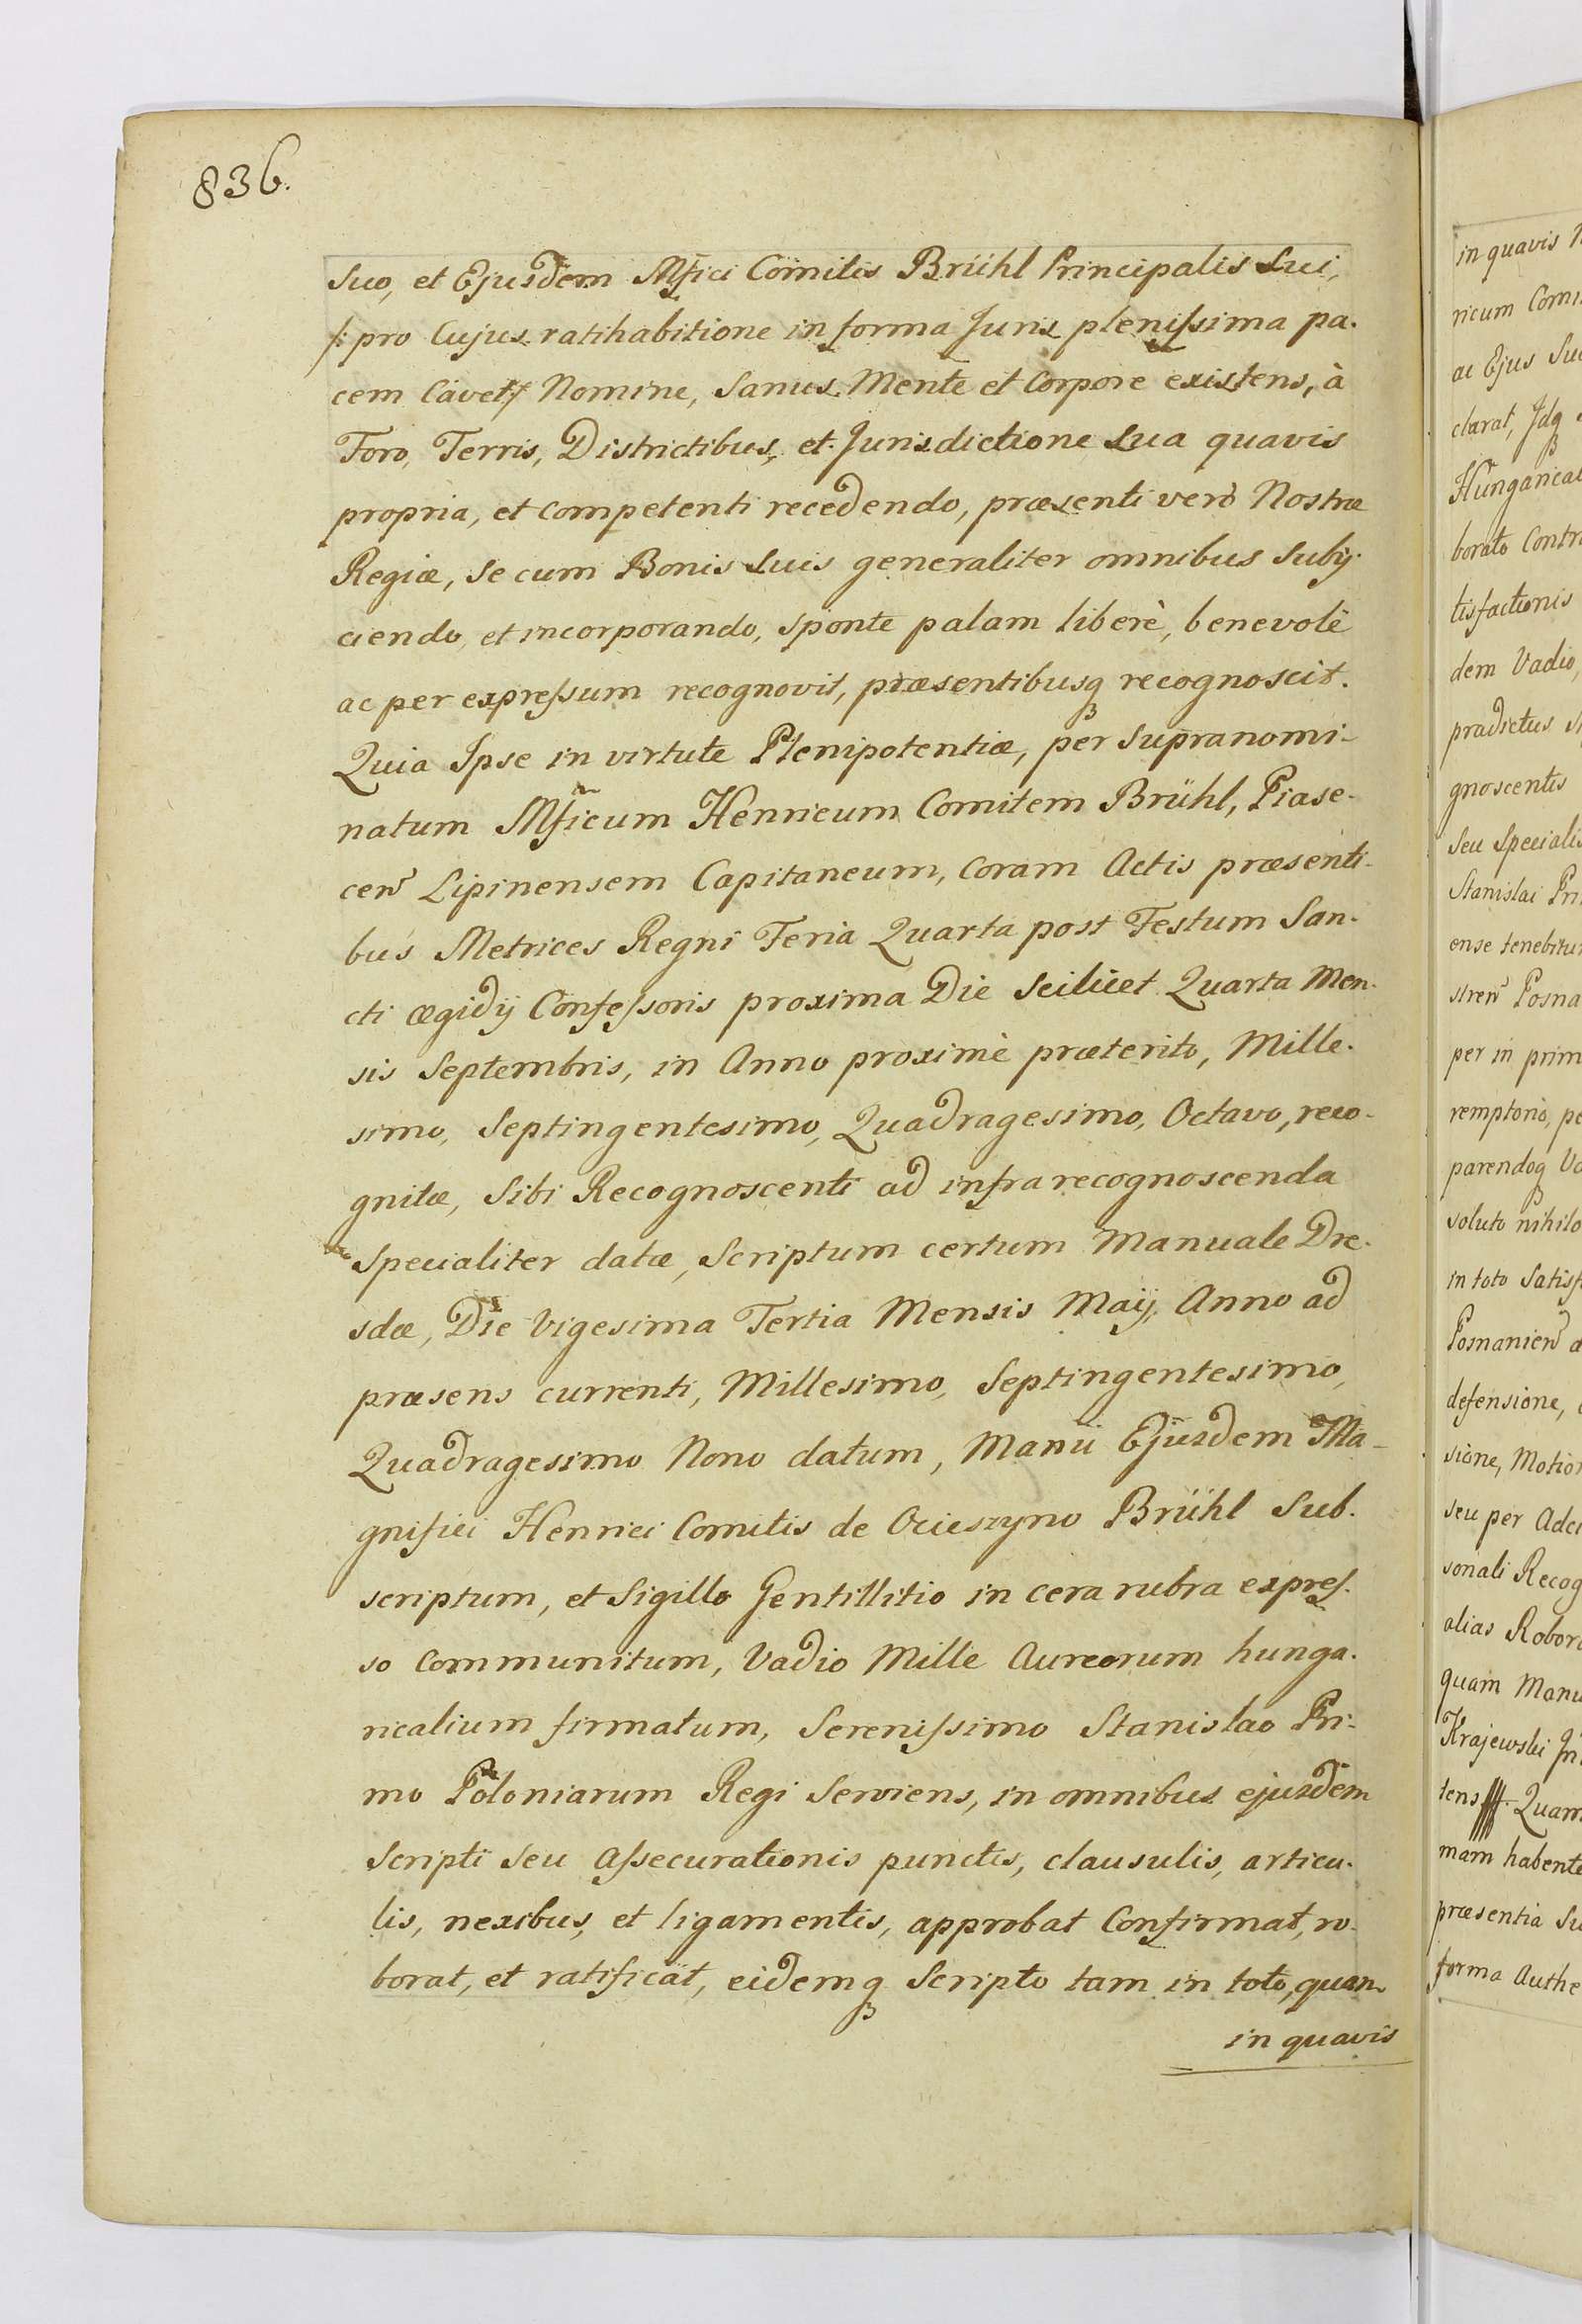 836.
suo, et Ejusdem Mfici Comitis Brühl Principalis Sui,
/: pro Cujus ratihabitione in forma Juris plenissima pa-
cem Cavet :/ Nomine, Sanus Mente et Corpore existens, à
Foro, Terris, Districtibus, et Jurisdictione Sua quavis
propria, et competenti recedendo, præsenti verò Nostræ
Regiæ, se cum Bonis Suis generaliter omnibus Subij-
ciendo, et incorporando, sponte palam liberè, benevolè
ac per expressum recognovit, præsentibusq recognoscit.
Quia Ipse in virtute Plenipotentiæ, per Supranomi-
natum Mficum Henricum Comitem Brühl, Piase-
cen Lipinensem Capitaneum, Coram Actis præsenti-
bus Metrices Regni Feria Quarta post Festum San-
cti ægidij Confessoris proxima Die Scilicet Quarta Men-
sis Septembris, in Anno proximè præterito, Mille-
simo, Septingentesimo, Quadragesimo, Octavo, reco-
gnitæ, Sibi Recognoscenti ad infra recognoscenda
Specialiter datæ, Scriptum certum Manuale Dre-
sdæ, Die Vigesima Tertia Mensis Maij, Anno ad
præsens currenti, Millesimo, Septingentesimo,
Quadragesimo Nono datum, Manu Ejusdem Ma-
gnifici Henrici Comitis de Ocieszyno Brühl Sub-
scriptum, et Sigillo Gentillitio in cera rubra expres-
so Communitum, Vadio Mille Aureorum hunga-
ricalium firmatum, Serenissimo Stanislao Pri-
mo Poloniarum Regi Serviens, in omnibus ejusdem
Scripti Seu Assecurationis punctis, clausulis, articu-
lis, nexibus, et ligamentis, approbat Confirmat, ro-
borat, et ratificat, eidemq Scripto tam in toto, quam
in quavis
in quavis
ricum Comi
ac Ejus Suc
clarat, Idq
Hungarical
borato Contr
tisfactionis
dem Vadio,
prædictus
gnoscentis
Seu Speciali
Stanislai Pri
ense tenebitur
stren Posna
per in prim
remptorio, pe
parendoq Va
soluto nihilo
in toto Satisf
Posnanien a
defensione,
sione, Motion
seu per Adci
sonali Recog
alias Robora
quam Manu
Krajewski In
tens Quam
mam habente
præsentia Su
forma Authe